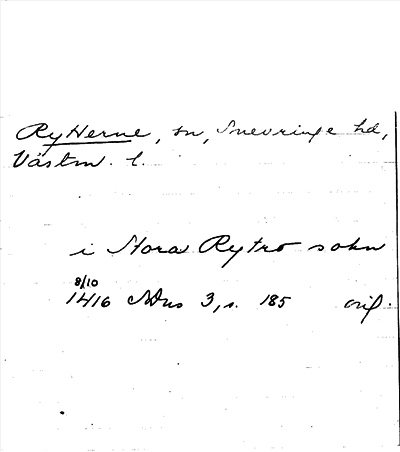 Rytterne, sn, Snevringe hd,
Västm. l.
i Stora Rytro sokn
8/10
1416 SDns 3, s. 185 orig.